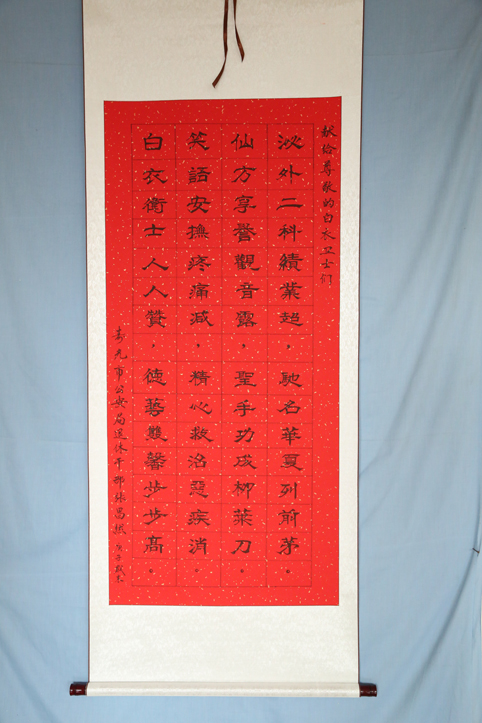 献给尊敬的白衣卫士们
泌外二科績業超，馳名華夏列前茅。
仙方享譽觀音露，聖手功成柳葉刀。
笑語安撫疼痛减，精心救治惡疾消。
白衣衛士人人贊，德藝雙馨步步高。
寿光市公安局退休干部张昌